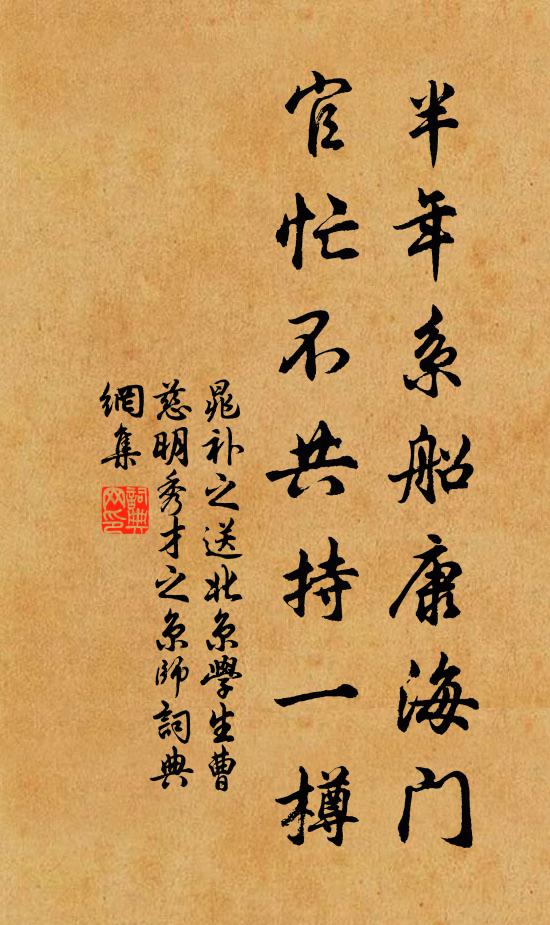 半年系船康海门
官忙不共持一樽
晁补之送北京學生曹
慈明秀才之京師詞典
網集
詞典網印